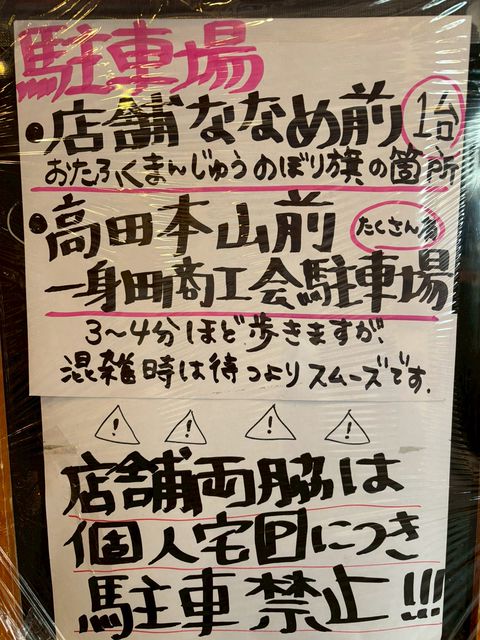 駐車場
●店舗ななめ前 1台
おたふくまんじゅうのぼり旗の箇所
●高田本山前 たくさん有
一身田商工会駐車場
3〜4分ほど歩きますが、
混雑時は待つよりスムーズです.
! ! ! !
店舗両脇は
個人宅Pにつき
駐車禁止!!!